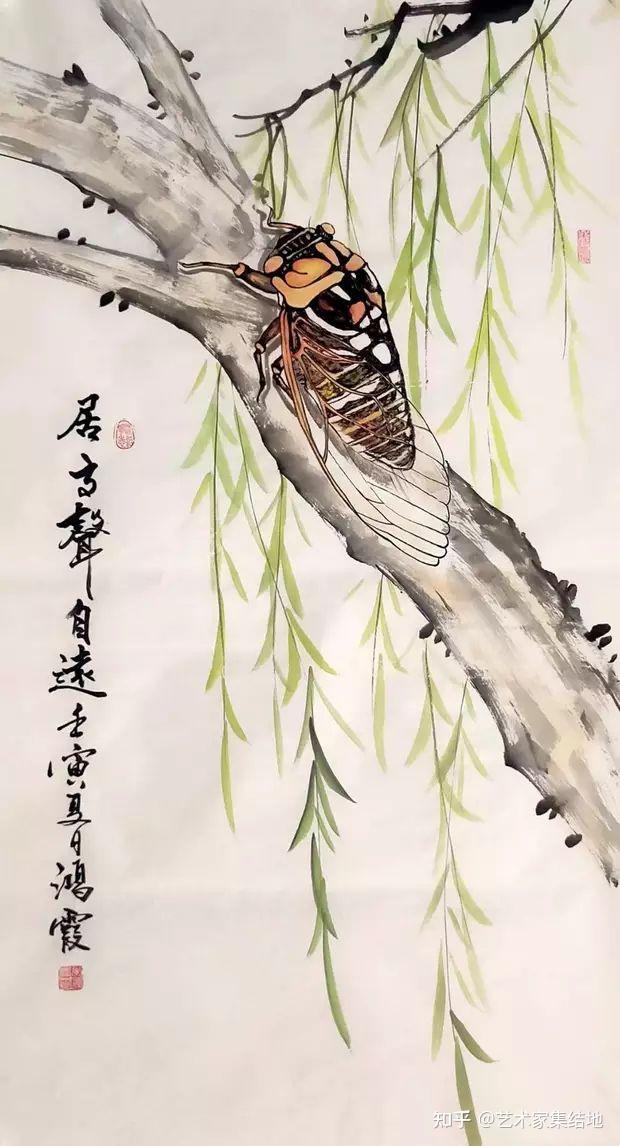 居高聲自遠壬寅夏日鴻霞
知乎 @艺术家集结地